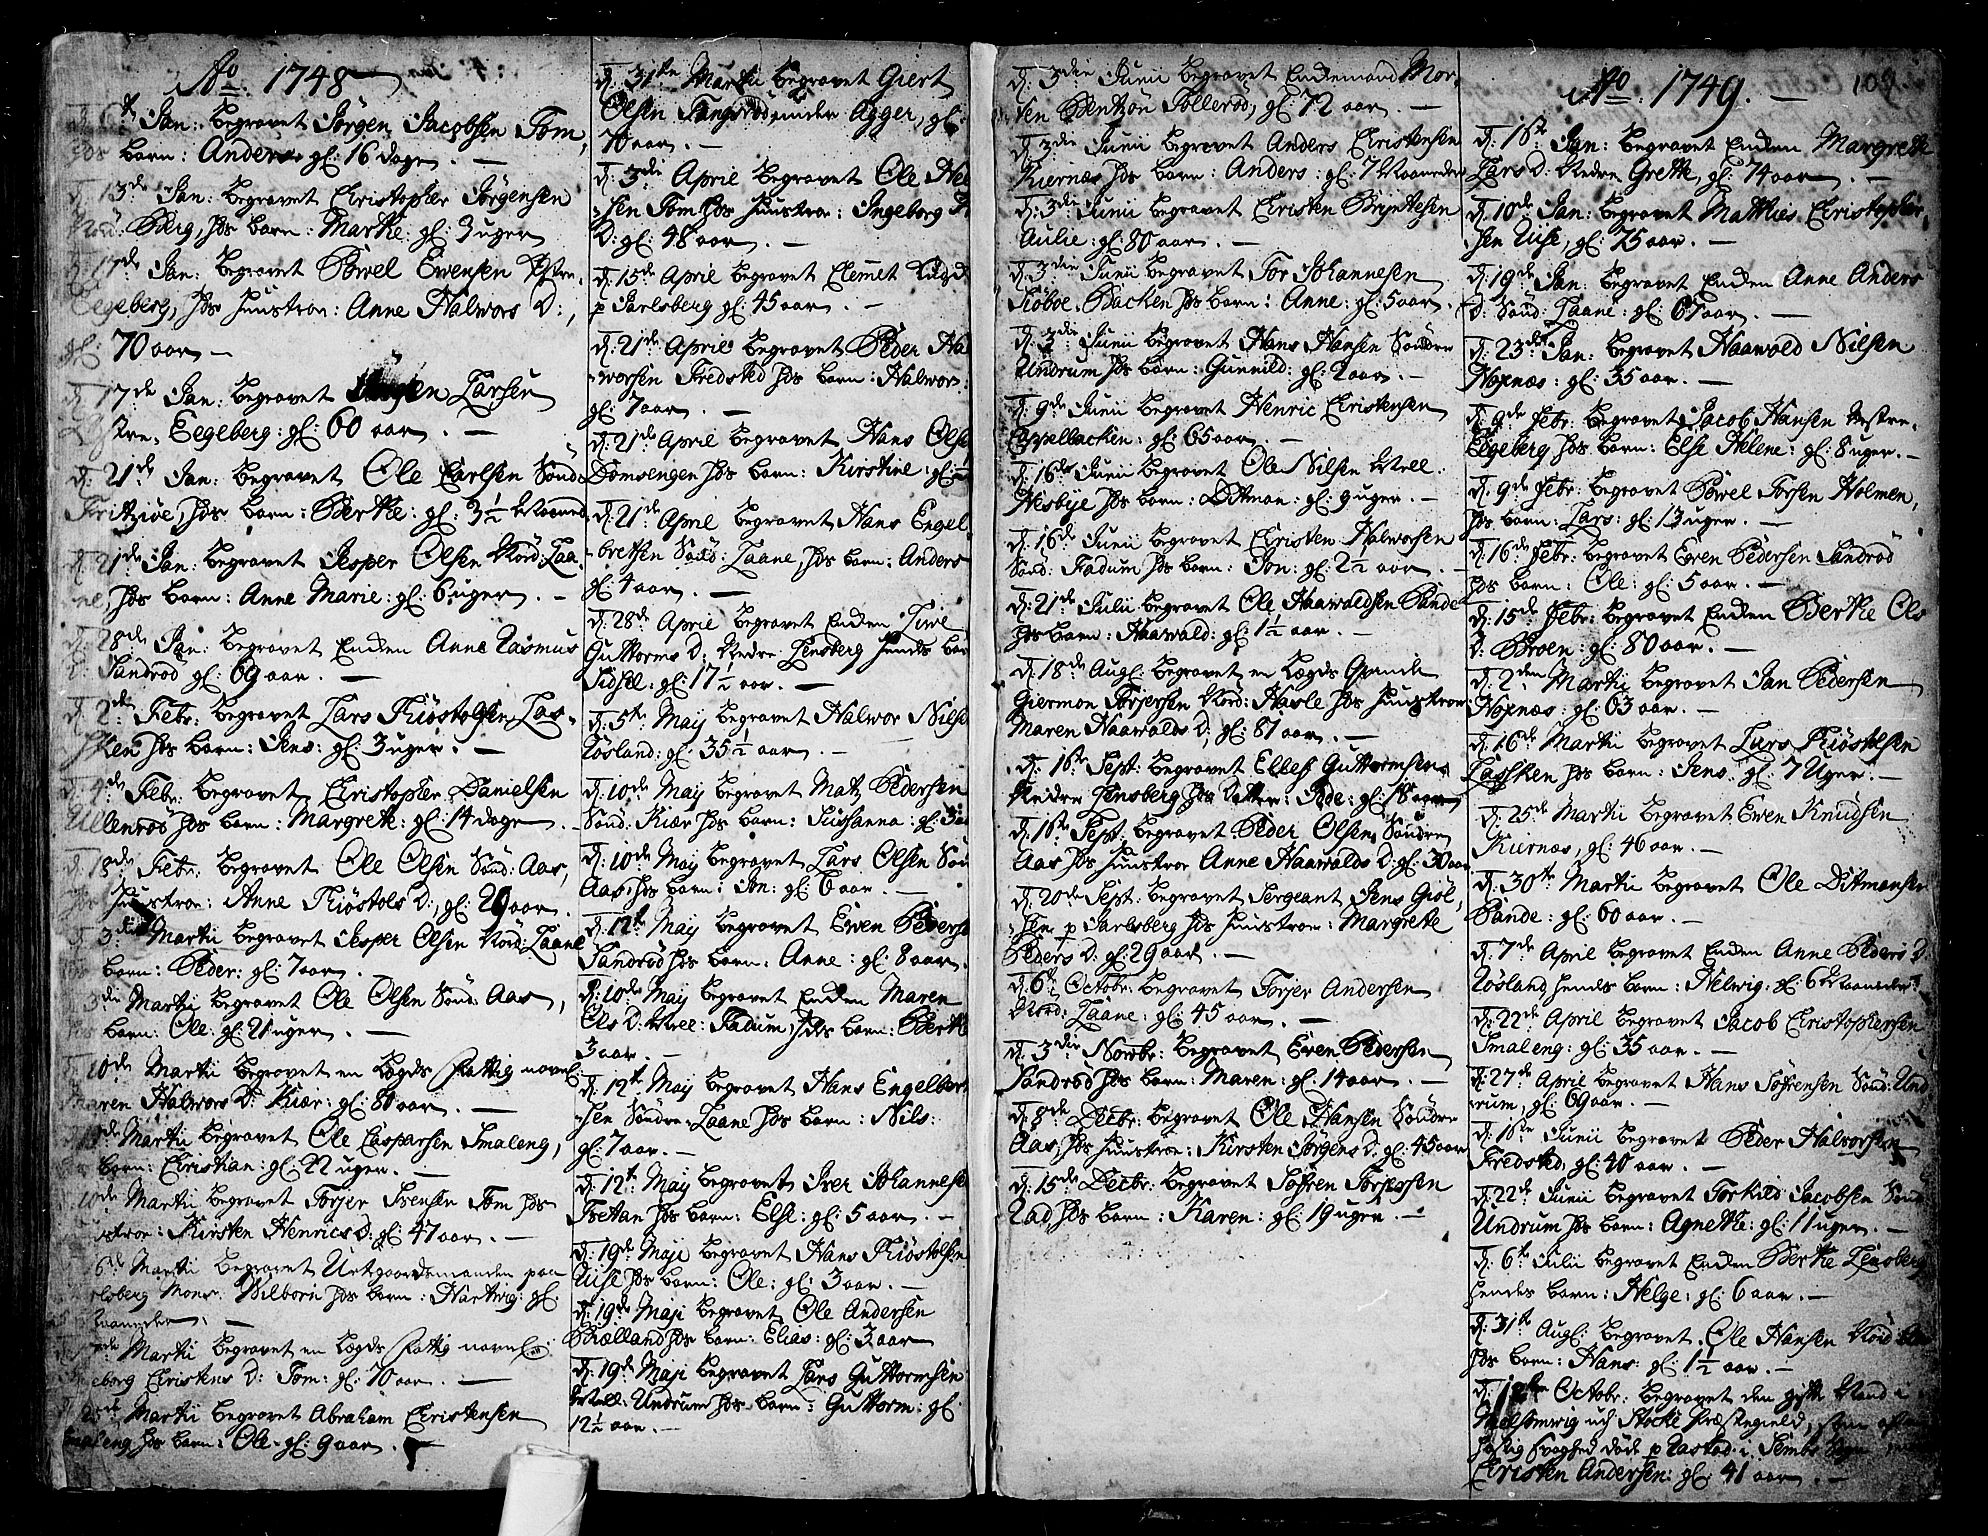 Ao 1748
Jan: Begravet Jørgen Jacobsen Tom,
hds barn: Anders gl: 16 dage. —
13de Jan: Begravet Christopher Jørgensen
Berg, hds barn: Marthe: gl: 3 uger
d: 17de Jan: begravet Powel Ewensen Østre
Eegeberg, hds huustroe: Anne Halvors D:,
gl: 70 aar —
d: 17de Jan: begravet Larsen
Østre Eegeberg: gl: 60 aar. —
d: 21de Jan: begravet Ole Carlsen Sönd:
Fritzöe, hds barn: Berthe: gl: 3½ Maaned
d: 21de Jan: begravet Jesper Olsen Nörd: Laa-
ne, hds barn: Anne Marie: gl: 6 uger. —
d: 28de Jan: begravet Enchen Anne Rasmus
D: Sandröd gl: 69 aar. —
d: 2den Febr: begravet Lars Kiöstolsen Las-
sken hds barn: Jens: gl: 3 uger. —
Febr: begravet Christopher Danielsen
Ullenröd hds barn: Margrete: gl: 14 dage.
d: 18de Febr: begravet Ole Olsen Sönd: Aas,
hds huustroe: Anne Kiöstols D:, gl: 29 aar.
3die Martii begravet Jesper Olsen Nörd: Laane
hds barn: Peder: gl: 7 aar.
3die Martii begravet Ole Olsen Sönd: Aas,
barn: Ole: gl: 21 uger. —
10de Martii begravet en Lægds fattig navnl:
Maren Halvors D: Kiær: gl: 80 aar. —
Martii begravet Ole Casparsen Smaleng,
barn: Christian: gl: 22 uger. —
10de Martii begravet Torjer Ivensen Tom hds
huustroe: Kirsten Henrics D: gl: 47 aar. —
Martii begravet Urtegaardsmanden paa
Jarlsberg Monsr. Wilborn hds barn: Hartwig: gl:
Maaneder. —
Martii begravet en Lægds fattig navnl:
Ingeborg Christens D: Tom: gl: 70 aar. —
Martii begravet Abraham Christensen
Smaleng hds barn: Ole: gl: 9 aar. —
d: 31te Martii begravet Giert
Olsen Tangsröd under Agger, gl:
70 aar. —
d: 3die April begravet Ole
sen Tom hds huustroe: Ingeborg
D: gl: 48 aar. —
d: 15de April begravet Clemmet
p Jarlsberg gl: 45 aar. —
d: 21de April begravet Peder Hal
worsen Fredsted hds barn: Halvor:
gl: 7 aar. —
d: 21de April begravet Hans Olse
Domsengen hds barn: Kirstine: gl:
d: 21de April begravet Hans Engel
bretsen Sönd: Laane, hds barn: Anders
gl: 4 aar. —
d: 28de April begravet Enchen Siwe
Guttorms D: Nedre Jensberg hends bar
Sidsel: gl: 17½ aar. —
d: 5te Maij begravet Halwor Nilse
Røsland: gl: 35½ aar. —
d: 10de Maij begravet Mats Pedersen
Sönd: Kiær hds barn: Susanna: gl: 3
d: 10de Maij begravet Lars Olsen Sön
Aas, hds barn: Jon: gl: 6 aar. —
d: 12te Maij begravet Ewen Pederse
Sandröd hds barn: Anne: gl: 8 aar.
d: 10de Maij begravet Enchen Maren
Ols D: Mell: Fadum, hds barn: Berthe
3 aar. —
d: 12te Maij begravet Hans Engelbret
sen Söndre Laane hds barn: Nils:
gl: 7 aar. —
d: 12te Maij begravet Iver Johannese
Tretan hds barn: Else: gl: 5 aar. —
d: 19de Maji begravet Hans Kiöstolsen
Ullse hds barn: Ole: gl: 3 aar. —
d: 19de Maji begravet Ole Andersen
Bælland hds barn: Elias: gl: 3 aar
d: 19de Maji begravet Lars Guttormsen
Mell: Undrum hds barn: Guttorm: gl:
12½ aar. —
d: 3die Junii begravet Enchemand Mor-
ten Bentzön Tollerød, gl: 72 aar. —
d: 3die Junii begravet Anders Christensen
Kiernæs hds barn: Anders: gl: 7 Maaneder
d: 3die Junii begravet Christen Bryntesen
Aulie: gl: 80 aar. —
d: 3die Junii begravet Tor Johannesen
Siöboe Backen hds barn: Anne: gl: 5 aar.
d: 3die Junii begravet Hans Hansen Söndre
Undrum hds barn: Gunnild: gl: 2 aar. —
d: 9de Junii begravet Henric Christensen
Cappelbacken: gl: 65 aar. —
d: 16de Junii begravet Ole Nilsen Mell:
Nesbye hds barn: Ditman: gl: 9 uger. —
d: 16de Junii begravet Christen Halvorsen
Sönd: Fadum hds barn: Jon: gl: 2½ aar. —
d: 21de Julii begravet Ole Haawaldsen Sande
hds barn: Haawald: gl: 1½ aar. —
d: 18de Aug: begravet en Lægds Qvinde
Giermon Torjersen Nörd: Hasle hds huustroe
Maren Haawalds D:, gl: 81 aar. —
d: 16te Sept: begravet Ellef Guttormsen
Nedre Jensberg hds datter: gl: 18 aar
d: 16te Sept: begravet Peder Olsen Söndre
Aas hds huustroe Anne Haawalds D: gl: 30 aar
d: 20de Sept: begravet Sergeant Jens Giöl-
sen p Jarlsberg hds huustroe: Margrete
Peders D: gl: 29 aar. —
d: 6te Octobr: begravet Torjer Andersen
Nörd: Laane: gl: 45 aar. —
d: 3die Novbr: begravet Even Pedersen
Sandröd hds barn: Maren: gl: 14 aar. —
d: 8de Decbr: begravet Ole Hansen Söndre
Aas, hds huustroe: Kirsten Jörgens D: gl: 45 aar
d: 15de Decbr: begravet Söfren Torjersen
Rad, hds barn: Karen: gl: 19 uger. —
Ao 1749. —
109.
d: 16te Jan: begravet Enchen Margrethe
Lars D: Nedre Grette, gl: 74 aar. —
d: 10de Jan: begravet Mathies Christopher-
sen Ullse, gl: 75 aar. —
d: 19de Jan: begravet Enchen Anne Anders
D: Sönd: Laane: gl: 67 aar. —
d: 23de Jan: begravet Haawold Nilsen
Nopnæs: gl: 35 aar. —
d: 9de Febr: begravet Jacob Hansen Vestre
Eegeberg hds barn: Else Helene: gl: 8 uger. —
d: 9de Febr: begravet Powel Torsen Holmen,
hds barn: Lars: gl: 13 uger. —
d: 16de Febr: begravet Even Pedersen Sandröd
hds barn: Ole: gl: 5 aar. —
d: 15de Febr: begravet Enchen Berthe Ols
D: Broen: gl: 80 aar. —
d: 2den Martii begravet Jan Pedersen
Nopnæs: gl: 63 aar. —
d: 16de Martii begravet Lars Kiöstolsen
Lassken hds barn: Jens: gl: 7 Uger. —
d: 25de Martii begravet Ewen Knudsen
Kiernæs, gl: 46 aar. —
d: 30te Martii begravet Ole Ditmansen
Sande: gl: 60 aar. —
d: 7de April begravet Enchen Anne Peders D.
Røsland hends barn: Helwig: gl: 6 Maaneder
d: 22de April begravet Jacob Christophersen
Smaleng: gl: 35 aar. —
d: 27de April begravet Hans Söfrensen Sönd: Und
rum, gl: 69 aar. —
d: 18de Junii begravet Peder Halvorsen
Fredsted, gl: 40 aar. —
d: 22de Junii begravet Torkild Jacobsen Sönd:
Undrum hds barn: Agnethe: gl: 11 uger. —
d: 6te Julii begravet Enchen Berthe Lensberg
hendes barn: Helge: gl: 6 aar. —
d: 31te Aug: begravet Ole Hansen Nörd:
hds barn: Hans: gl: 1½ aar. —
Octobr: begravet den gifte Mand i
Melsomwig udj Stocke Præstegield, som
hastig svaghed döde p Rastad i Sembs Sogn
Christen Andersen: gl: 41 aar. —